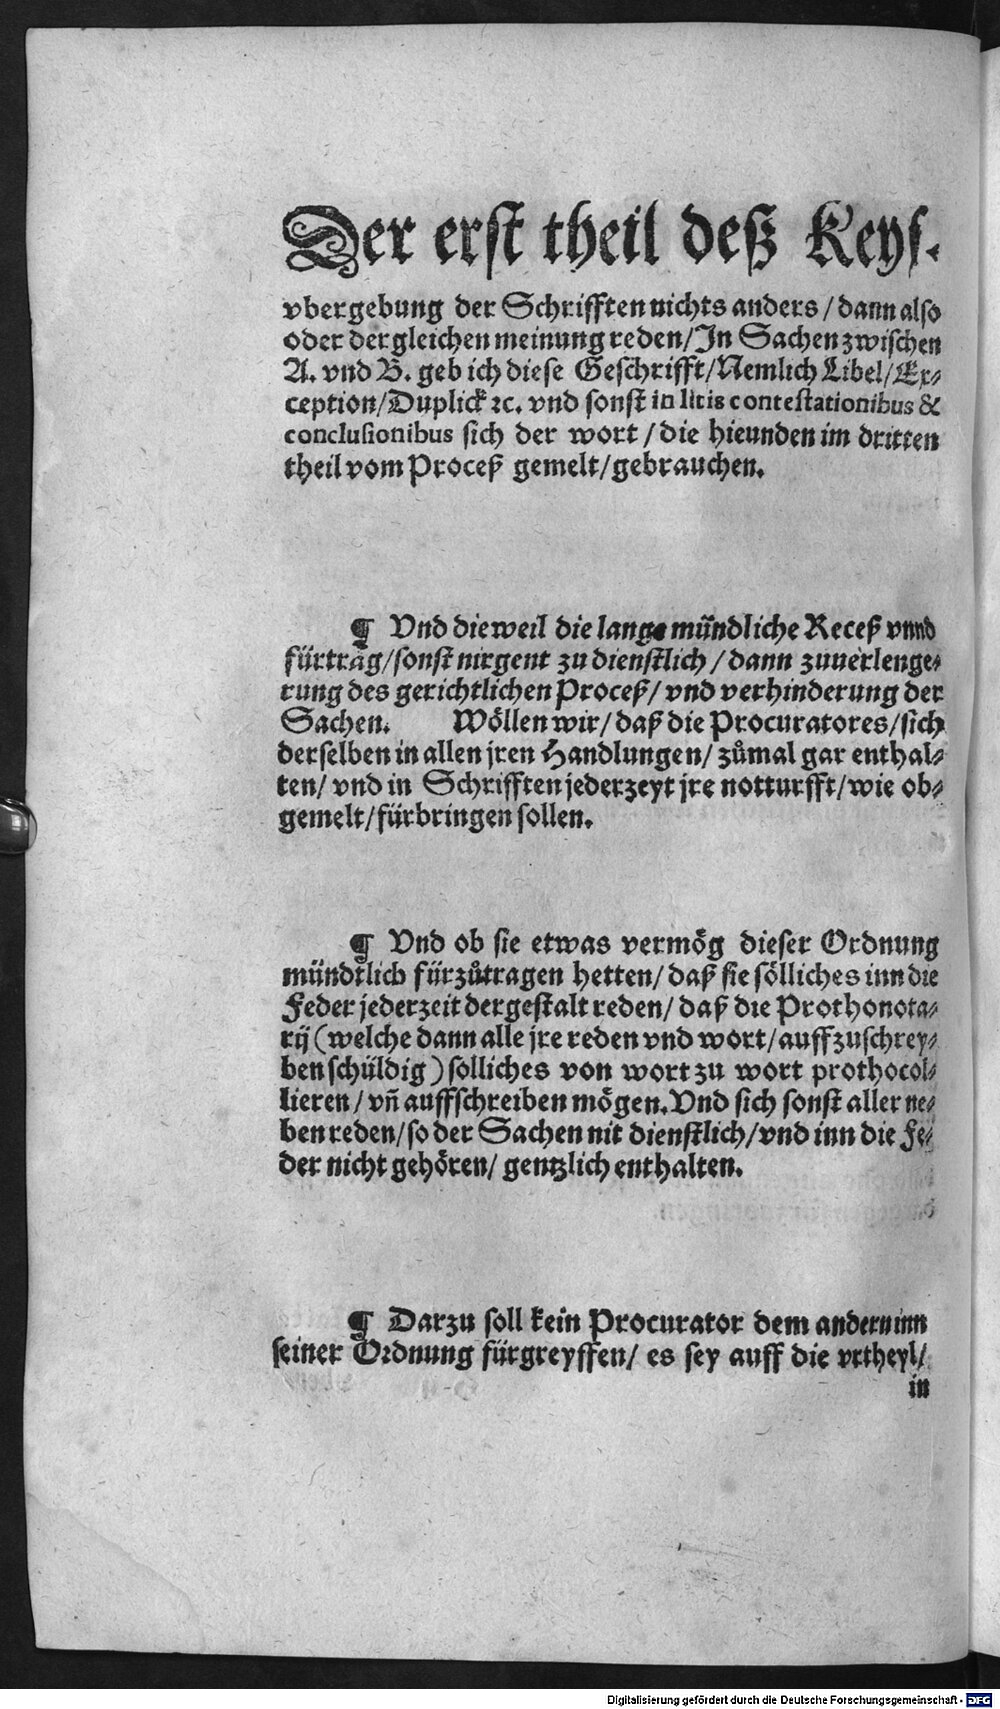 Der erst theil deß Keys.
vbergebung der Schrifften nichts anders / dann also
oder dergleichen meinung reden / In Sachen zwischen
A. vnd B. geb ich diese Geschrifft / Nemlich Libel / Ex⸗
ception / Duplick ꝛc. vnd sonst in litis contestationibus &
conclusionibus sich der wort / die hieunden im dritten
theil vom Proceß gemelt / gebrauchen.
¶ Vnd dieweil die lange mündliche Receß vnnd
fürträg / sonst nirgent zu dienstlich / dann zuuerlenge⸗
rung des gerichtlichen Proceß / vnd verhinderung der
Sachen. Wöllen wir / daß die Procuratores / sich
derselben in allen jren Handlungen / zůmal gar enthal⸗
ten / vnd in Schrifften jederzeyt jre notturfft / wie ob⸗
gemelt / fürbringen sollen.
¶ Vnd ob sie etwas vermög dieser Ordnung
mündtlich fürzůtragen hetten / daß sie sölliches inn die
Feder jederzeit dergestalt reden / daß die Prothonota⸗
rij (welche dann alle jre reden vnd wort / auffzuschrey⸗
ben schüldig) solliches von wort zu wort prothocol⸗
lieren / vñ auffschreiben mögen. Vnd sich sonst aller ne⸗
ben reden / so der Sachen nit dienstlich / vnd inn die Fe⸗
der nicht gehören / gentzlich enthalten.
¶ Darzu soll kein Procurator dem andern inn
seiner Ordnung fürgreyffen / es sey auff die vrtheyl /
in
Digitalisierung gefördert durch die Deutsche Forschungsgemeinschaft - DFG